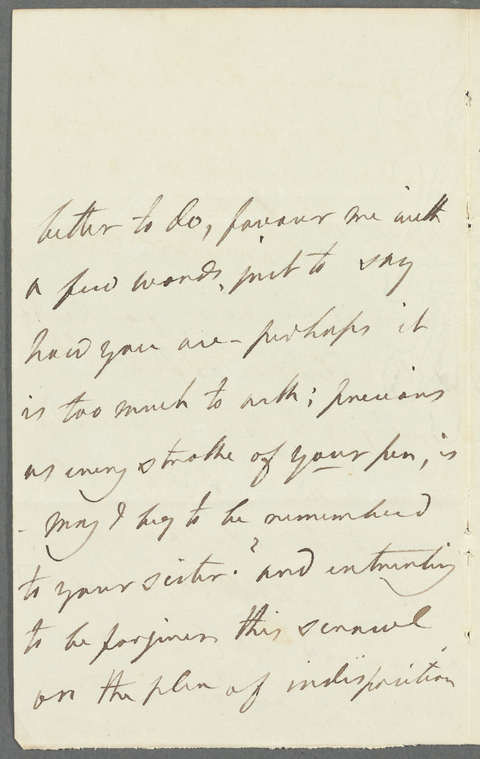 better to do, favour me with
a few words, just to say
how you are - perhaps it
is too much to ask; precious
as every stroke of your pen, is
- May I beg to be remembered
to your sister? and entreating
to be forgiven this scrawl
on the plea of indisposition